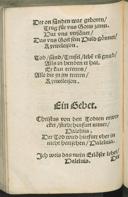 Der on sünden war geboren/
Trug für vns Gottes zorn.
Hat vns versünet/
Das vns Gott sein Huld gönnet/
Kyrieeleyson.
Tod/sünd/Teufel/lebē vñ gnad/
Alls in henden er hat.
Er kan erretten/
Alle die zu im tretten/
Kyrieeleyson.
Ein Gebet.
Christus von den Todten erwe
cket/stirbt hinfurt nimer/
Haleluia.
Der Tod wird hinfurt vber in
nicht herschen/Haleluia.
Ich weis das mein Erlöser lebet/
Haleluia.